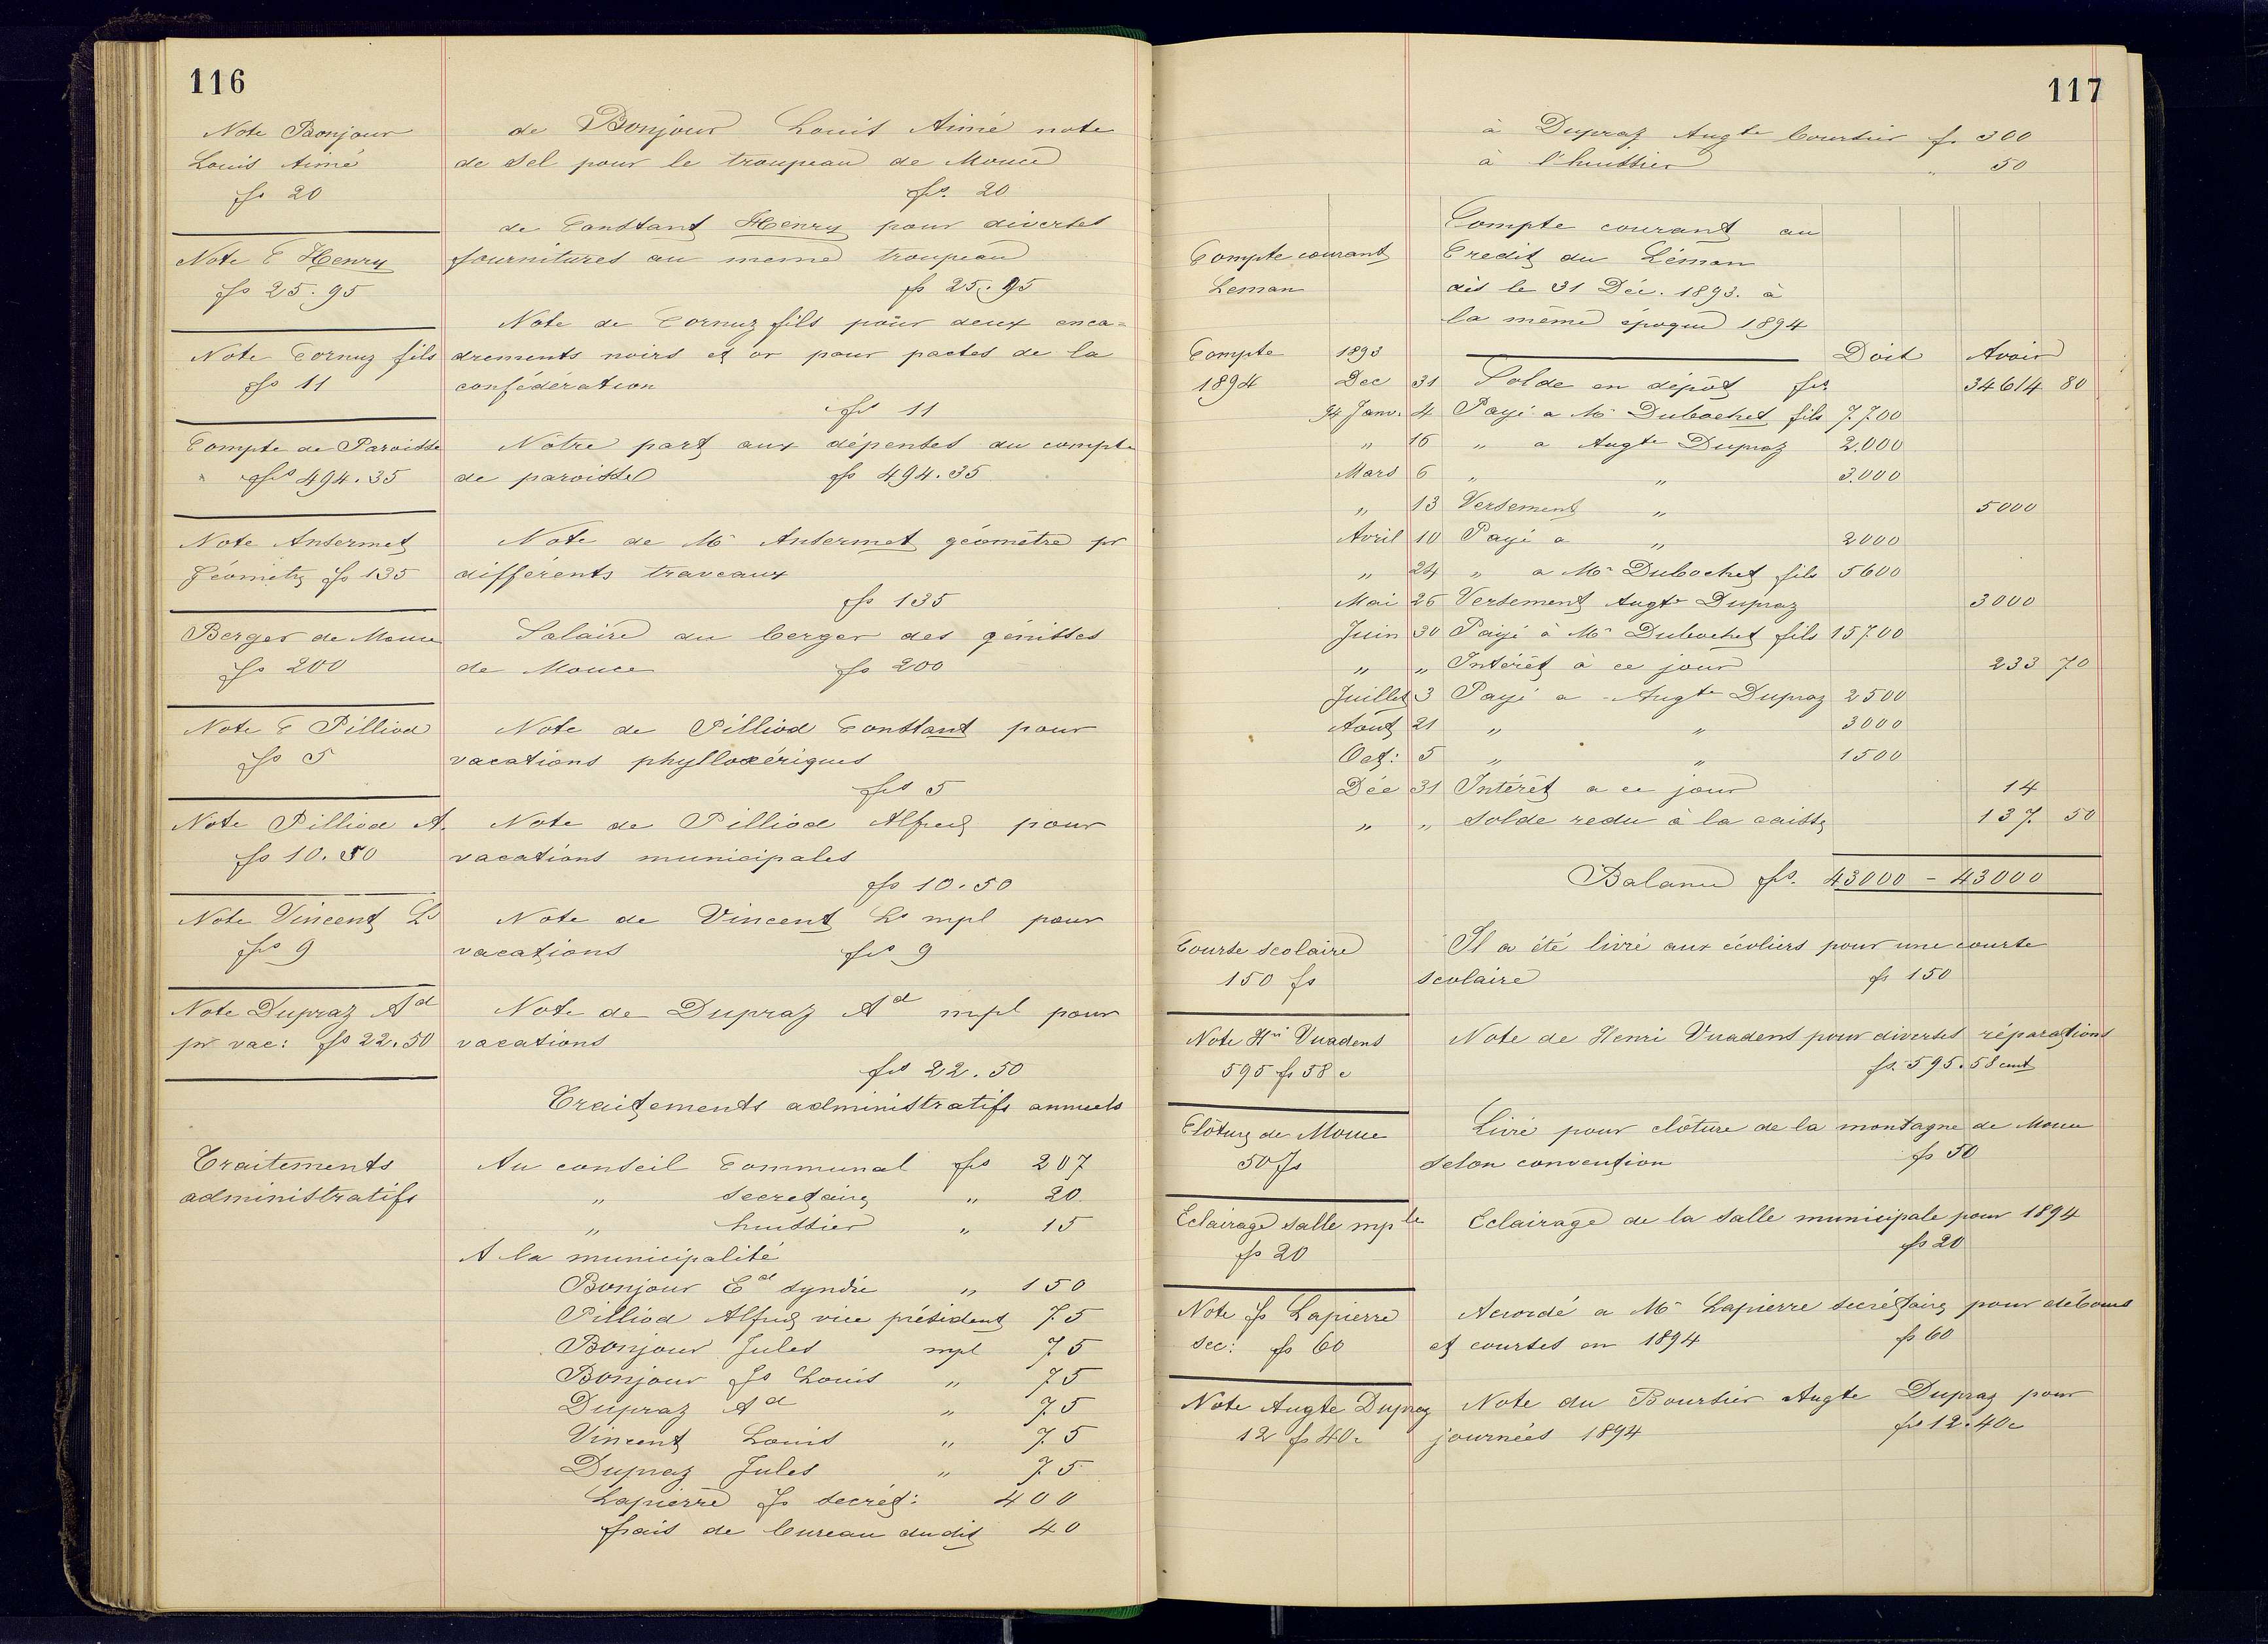 116
Note Bonjour
Louis Aimé
fs 20
de Bonjour Louis Aimé note
de sel pour le troupeau de Mouce
frs. 20
Note C Henry
fs 25.95
de Constant Henry pour diverses
fournitures au meme troupeau
fs 25.95
Note Cornuz fils
fs 11
Note de Cornuz fils pour deux enca=
drements noirs et or pour pactes de la
confédération
frs 11
Compte de Paroisse
" frs 494.35
Nôtre part aux dépenses du compte
de paroisse fs 494.35
Note Ansermet
Géomètre fs 135
Note de Mr Ansermet géomètre pr
différents traveaux
fs 135
Berger de Mouce
fs 200
Salaire du berger des génisses
de Mouce fs 200
Note C Pilliod
fs 5
Note de Pilliod Constant pour
vacations phylloxériques
frs 5
Note Pilliod A.
fs 10.50
Note de Pilliod Alfred pour
vacations municipales
fs 10.50
Note Vincent Ls
frs 9
Note de Vincent Ls mpl pour
vacations frs 9
Note Dupraz Ad
pr vac: fs 22.50
Note de Dupraz Ad mpl pour
vacations
frs 22.50
Traitements administratifs annuels
Traitements
administratifs
Au conseil Communal frs 207
" secretaire " 20
" huissier " 15
A la municipalité
Bonjour Ed syndic " 150
Pilliod Alfred vice président 75
Bonjour Jules mpl 75
Bonjour Js Louis " 75
Dupraz Ad " 75
Vincent Louis " 75
Dupraz Jules " 75
Lapierre Js secrét: 400
frais de bureau dudit 40
117
à Dupraz Augte boursier f. 300
à l'huissier " 50
Compte courant
Leman
Compte courant au
Credit du Léman
dès le 31 Déc. 1893. à
la même époque 1894
Compte 1893 Doit Avoir
1894 Dec 31 Solde en dépôt frs 34614 80
94 Janv. 4 Payé a Mr Dubochet fils 7700
" 16 " a Augte Dupraz 2.000
Mars 6 " " 3.000
" 13 Versement " 5000
Avril 10 Payé a " 2000
" 24 " a Mr Dubochet fils 5600
Mai 26 Versement Augte Dupraz 3000
Juin 30 Payé à Mr Dubochet fils 15700
" " Intérêt à ce jour 233 70
Juillet 3 Payé a Augte Dupraz 2500
Aout 21 " " 3000
Oct: 5 " " 1500
Déc 31 Intérêt a ce jour 14
" " Solde redu à la caisse 137 50
Balance frs. 43000 - 43000
Course scolaire
150 fs
Il a été livré aux écoliers pour une course
scolaire fs 150
Note Hri Vuadens
595 fs 58 c
Note de Henri Vuadens pour diverses réparations
fs. 595.58 cent
Clôture de Mouce
50 fs
Livré pour clôture de la montagne de Mouce
selon convention fs 50
Eclairage salle mple
fs 20
Eclairage de la salle municipale pour 1894
fs 20
Note Js Lapierre
sec: fs 60
Accordé a Mr Lapierre secrétaire pour débours
et courses en 1894 fs 60
Note Augte Dupraz
12 fs 40c
Note du Boursier Augte Dupraz pour
journées 1894 frs 12.40c